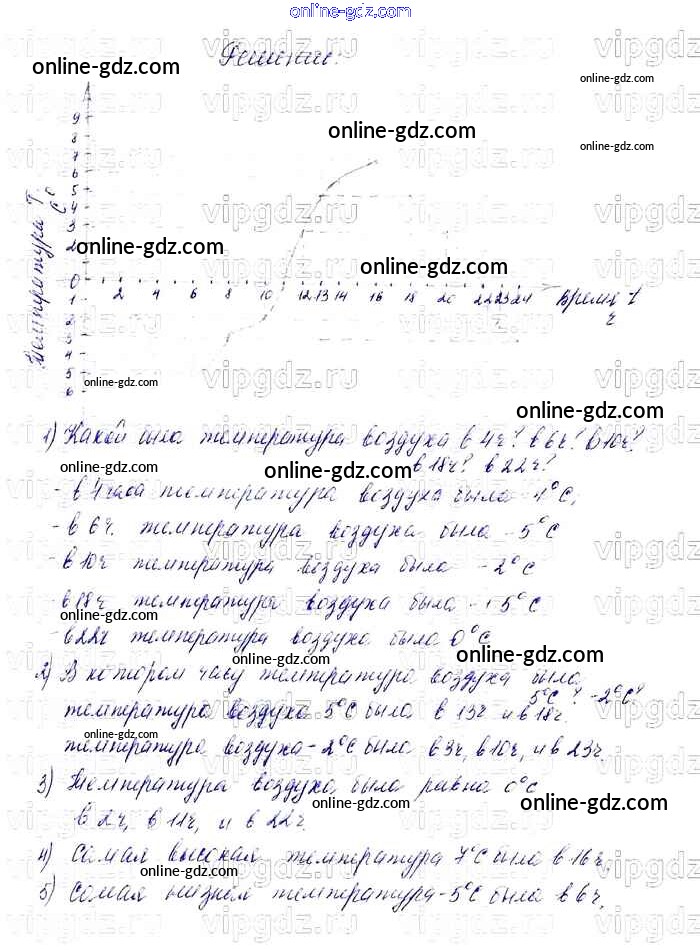 online-gdz.com
Решение:
online-gdz.com
online-gdz.com
online-gdz.com
online-gdz.com
vipgdz.ru
Температура T
°C
9
8
7
6
5
4
3
2
0
1
2
3
4
5
6
2 4 6 8 10 12 13 14 16 18 20 22 23 24 Время t
ч
online-gdz.com
online-gdz.com
online-gdz.com
online-gdz.com
1) Какой была температура воздуха в 4ч? в 6ч? в 10ч?
в 18ч? в 22ч?
online-gdz.com
- в 4 часа температура воздуха была -4°C,
- в 6ч. температура воздуха была -5°C
online-gdz.com
- в 10ч температура воздуха была -2°C
online-gdz.com
- в 18ч температура воздуха была +5°C
- в 22ч температура воздуха была 0°C
online-gdz.com
online-gdz.com
2) В котором часу температура воздуха была
5°C? -2°C?
температура воздуха 5°C была в 13ч и в 18ч.
online-gdz.com
температура воздуха -2°C была в 3ч, в 10ч, и в 23ч.
3) Температура воздуха была равна 0°C
online-gdz.com
online-gdz.com
в 2ч, в 11ч, и в 22ч.
4) Самая высокая температура 7°C была в 16ч,
online-gdz.com
online-gdz.com
5) Самая низкая температура -5°C была в 6ч,